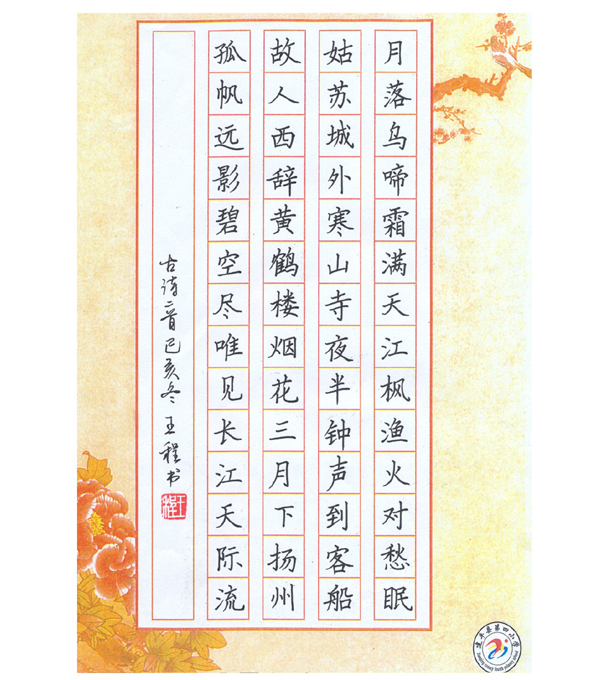 月落乌啼霜满天江枫渔火对愁眠
姑苏城外寒山寺夜半钟声到客船
故人西辞黄鹤楼烟花三月下扬州
孤帆远影碧空尽唯见长江天际流
古诗二首己亥冬王程书
王程
建平县第四小学